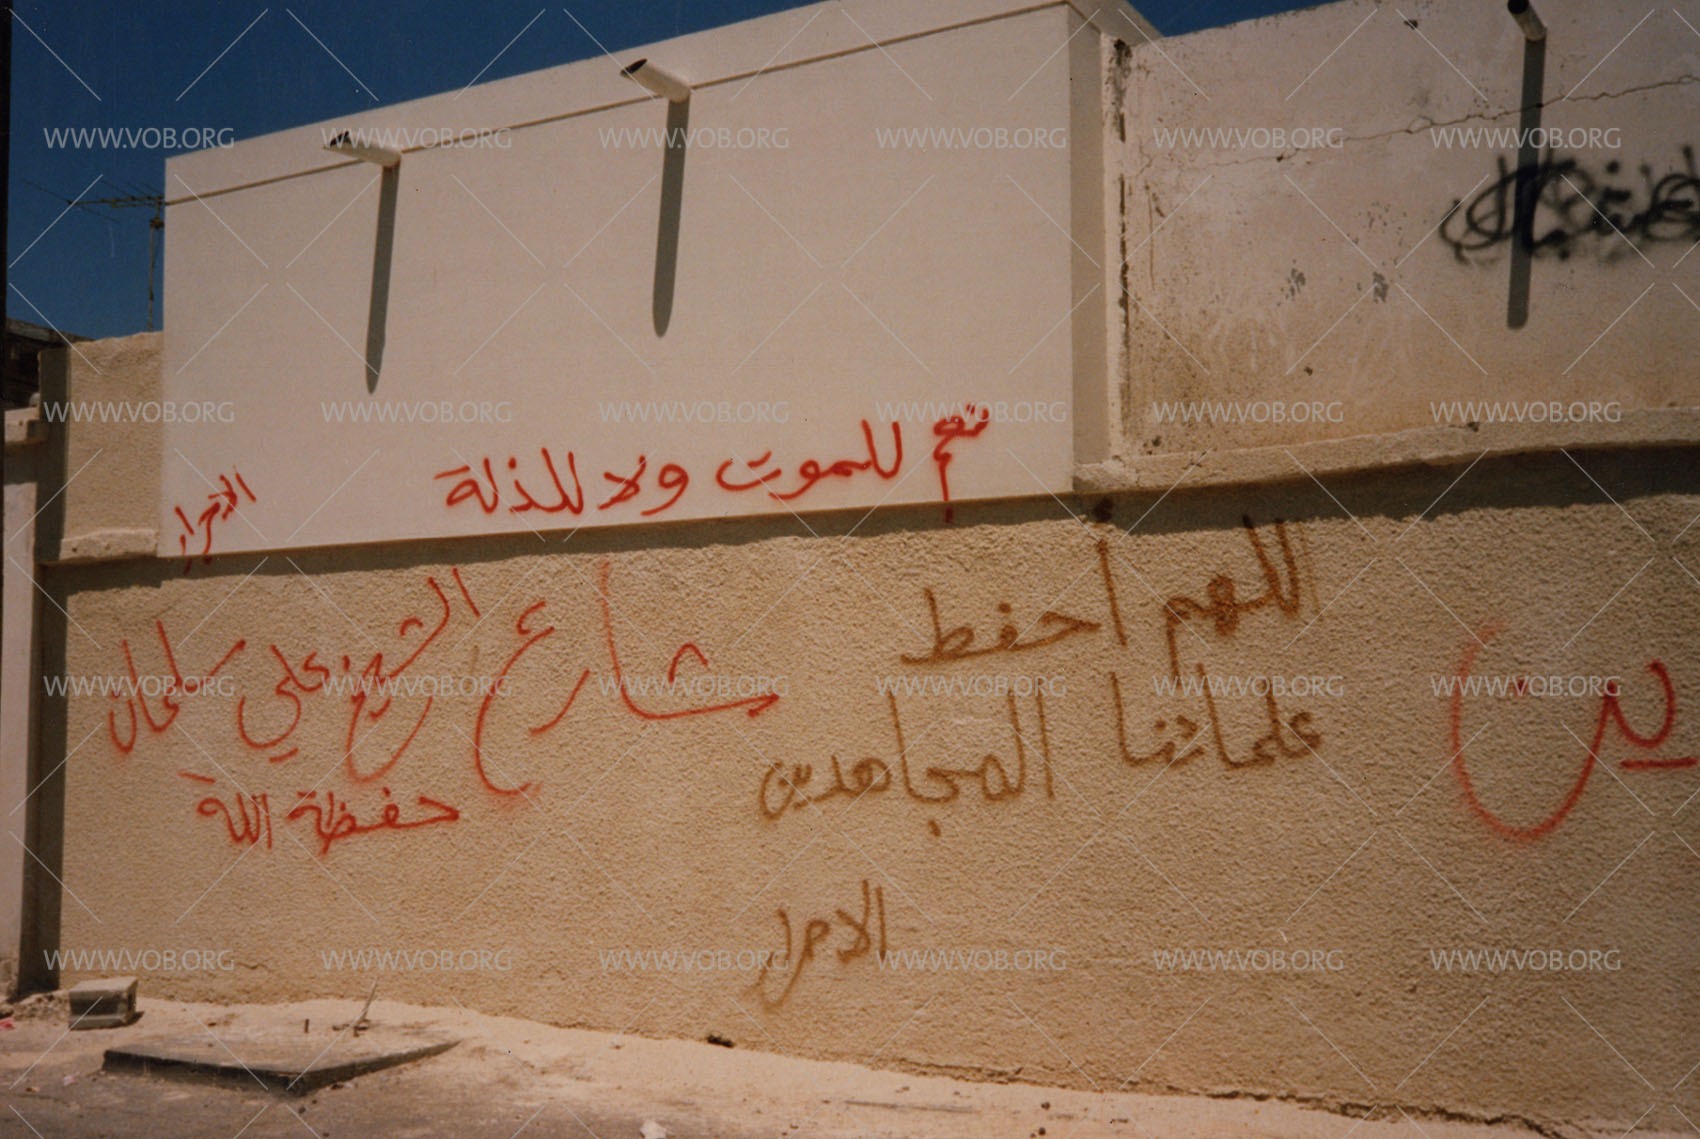 نعم للموت ولا للذلة
الاحرار
اللهم احفط
علمائنا المجاهدين
الاحرار
شارع الشيخ علي سلمان
حفظة اللة
ين
WWW.VOB.ORG WWW.VOB.ORG WWW.VOB.ORG WWW.VOB.ORG WWW.VOB.ORG WWW.VOB.ORG
WWW.VOB.ORG WWW.VOB.ORG WWW.VOB.ORG WWW.VOB.ORG WWW.VOB.ORG WWW.VOB.ORG
WWW.VOB.ORG WWW.VOB.ORG WWW.VOB.ORG WWW.VOB.ORG WWW.VOB.ORG WWW.VOB.ORG
WWW.VOB.ORG WWW.VOB.ORG WWW.VOB.ORG WWW.VOB.ORG WWW.VOB.ORG WWW.VOB.ORG